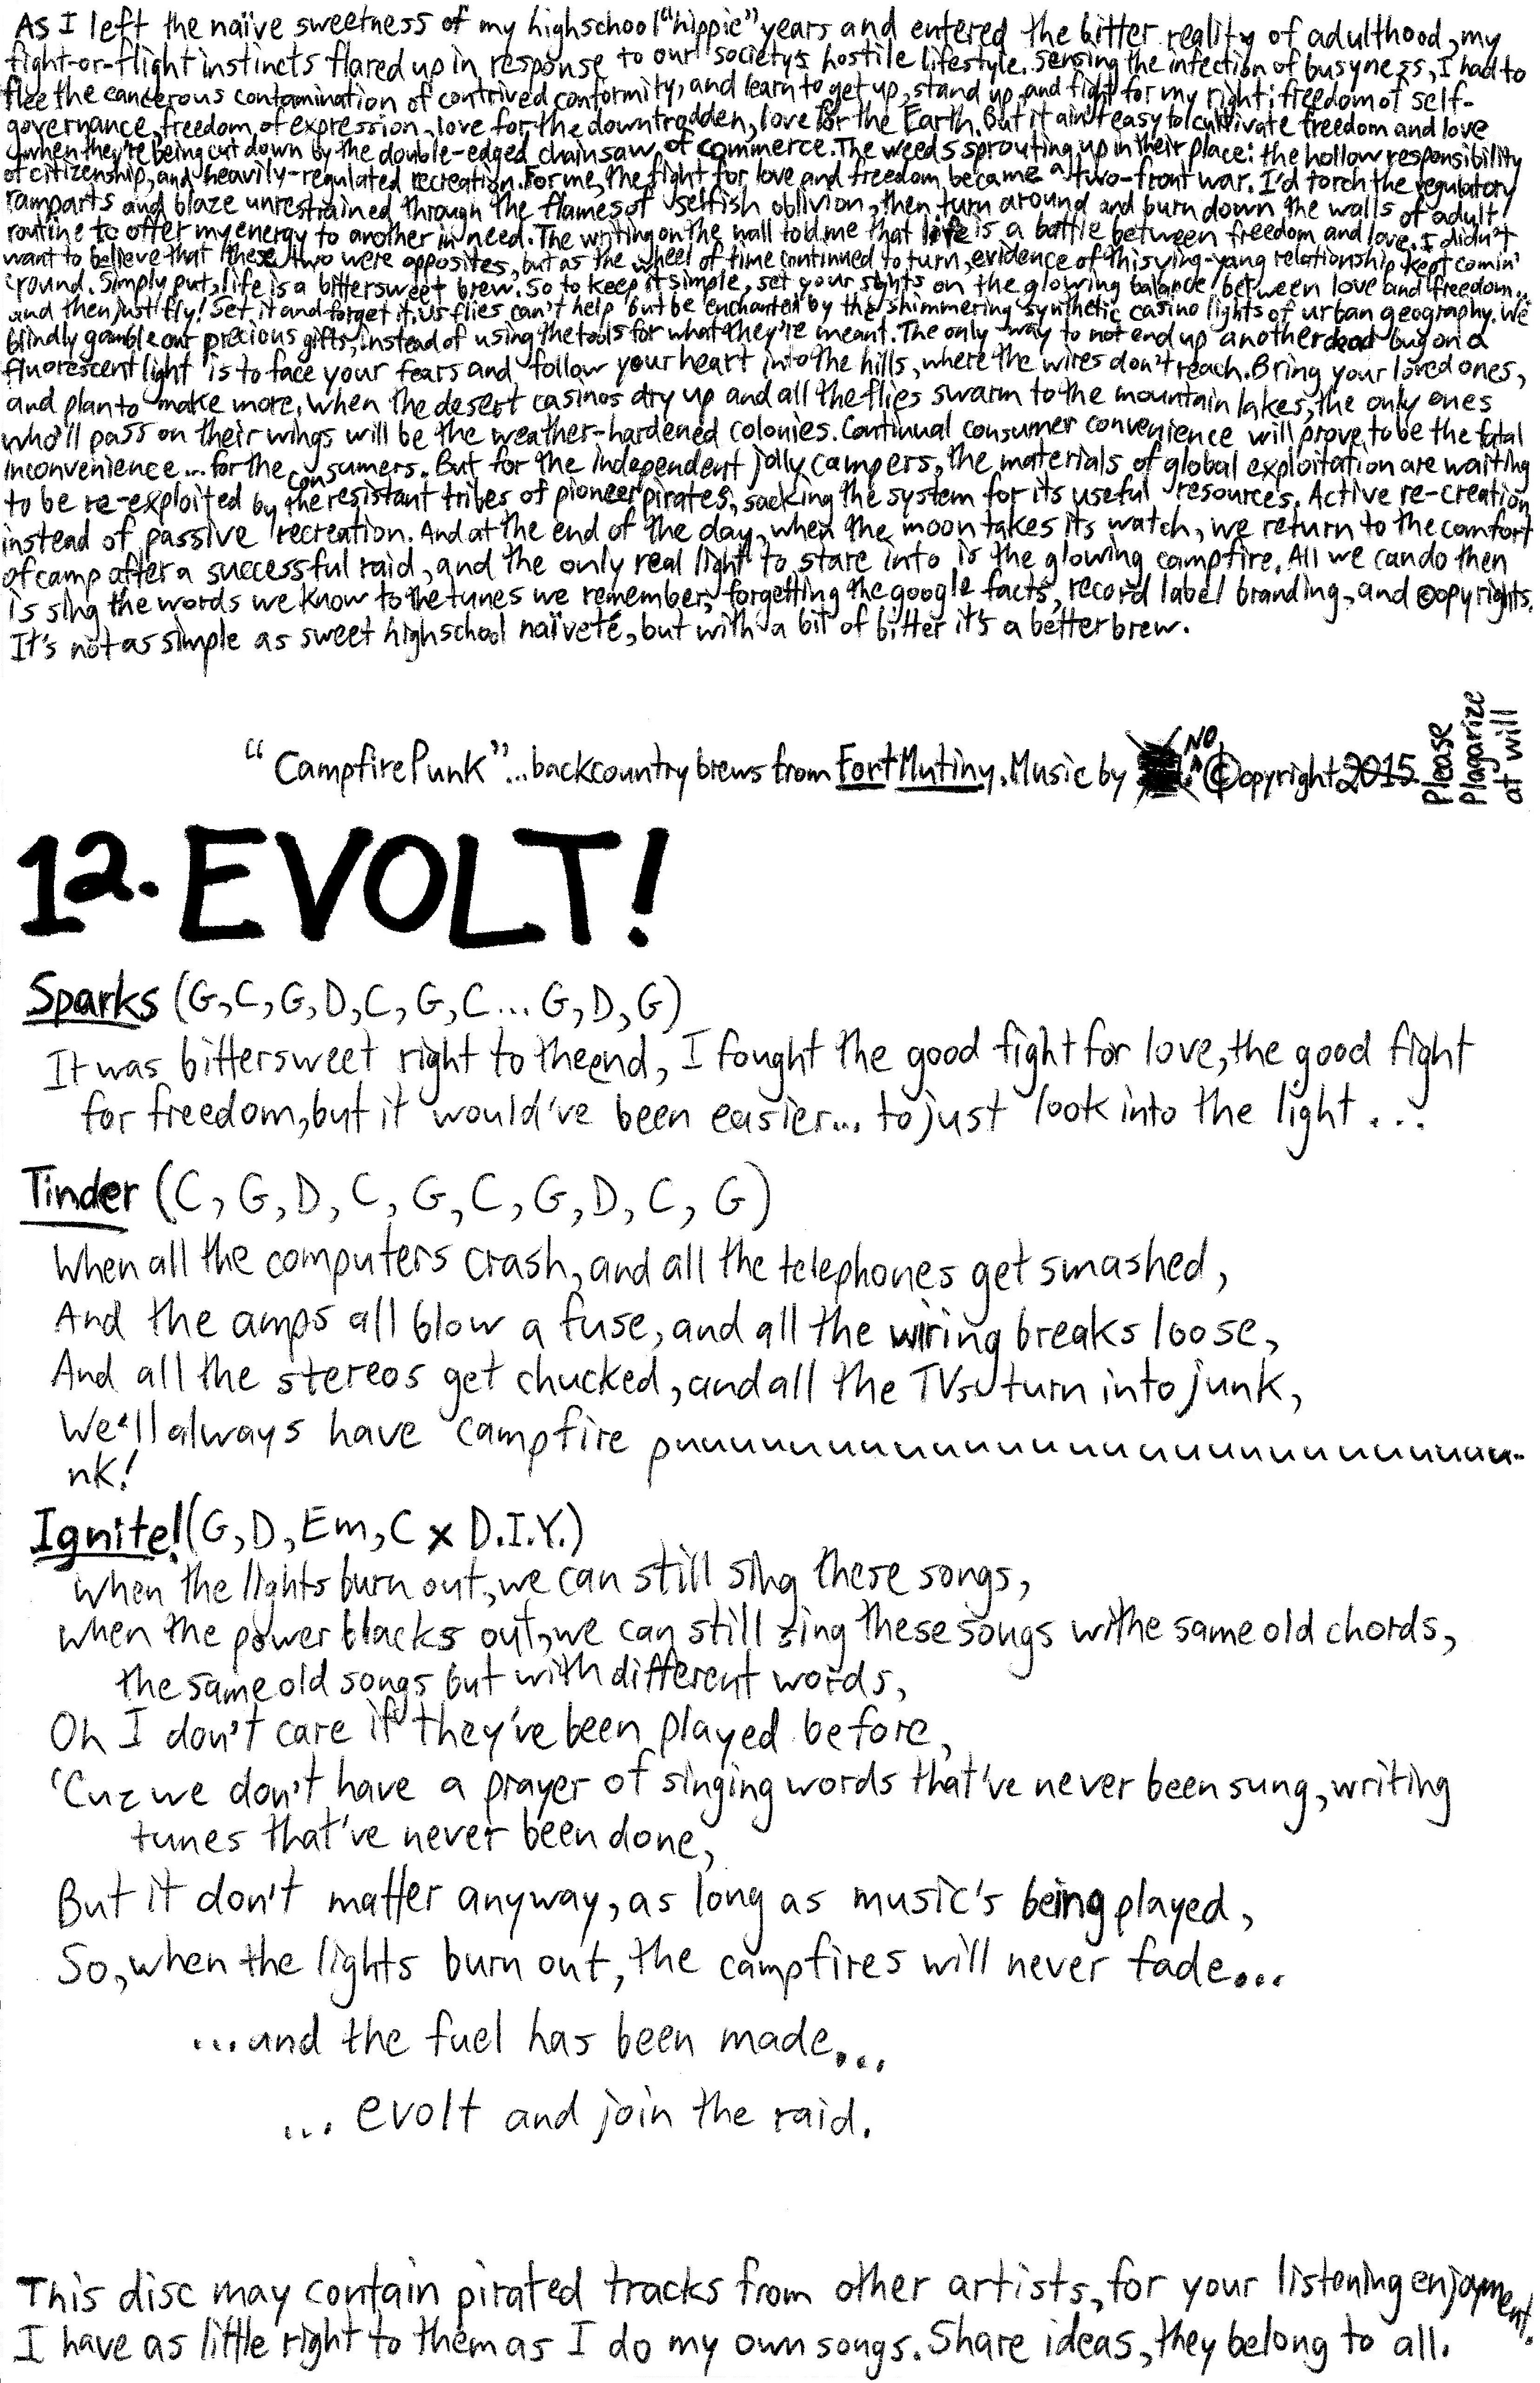 As I left the naïve sweetness of my highschool "hippie" years and entered the bitter reality of adulthood, my
fight-or-flight instincts flared up in response to our society's hostile lifestyle. Sensing the infection of busyness, I had to
flee the cancerous contamination of contrived conformity, and learn to get up, stand up, and fight for my right: freedom of self-
governance, freedom of expression, love for the downtrodden, love for the Earth. But it ain't easy to cultivate freedom and love
when they're being cut down by the double-edged chainsaw of commerce. The weeds sprouting up in their place: the hollow responsibility
of citizenship, and heavily-regulated recreation. For me, the fight for love and freedom became a two-front war. I'd torch the regulatory
ramparts and blaze unrestrained through the flames of selfish oblivion, then turn around and burn down the walls of adult
routine to offer my energy to another in need. The writing on the wall told me that life is a battle between freedom and love. I didn't
want to believe that these two were opposites, but as the wheel of time continued to turn, evidence of this ying-yang relationship kept comin'
'round. Simply put, life is a bittersweet brew. So to keep it simple, set your sights on the glowing balance between love and freedom...
and then just fly! Set it and forget it. Us flies can't help but be enchanted by the shimmering synthetic casino lights of urban geography. We
blindly gamble our precious gifts, instead of using the tools for what they're meant. The only way to not end up another dead bug on a
fluorescent light is to face your fears and follow your heart into the hills, where the wires don't reach. Bring your loved ones,
and plan to make more. When the desert casinos dry up and all the flies swarm to the mountain lakes, the only ones
who'll pass on their wings will be the weather-hardened colonies. Continual consumer convenience will prove to be the fatal
inconvenience... for the consumers. But for the independent jolly campers, the materials of global exploitation are waiting
to be re-exploited by the resistant tribes of pioneer pirates, sacking the system for its useful resources. Active re-creation
instead of passive recreation. And at the end of the day, when the moon takes its watch, we return to the comfort
of camp after a successful raid, and the only real light to stare into is the glowing campfire. All we can do then
is sing the words we know to the tunes we remember, forgetting the google facts, record label branding, and ©opyrights.
It's not as simple as sweet highschool naïveté, but with a bit of bitter it's a better brew.
"Campfire Punk"... backcountry brews from Fort Mutiny. Music by NO ©opyright 2015
Please
Plagarize
at will
12. EVOLT!
Sparks (G, C, G, D, C, G, C... G, D, G)
It was bittersweet right to the end, I fought the good fight for love, the good fight
for freedom, but it would've been easier... to just look into the light...
Tinder (C, G, D, C, G, C, G, D, C, G)
When all the computers crash, and all the telephones get smashed,
And the amps all blow a fuse, and all the wiring breaks loose,
And all the stereos get chucked, and all the TVs turn into junk,
We'll always have campfire puuuuuuuuuuuuuuuuuuuuuuuuu-
nk!
Ignite! (G, D, Em, C x D.I.Y.)
When the lights burn out, we can still sing these songs,
When the power blacks out, we can still sing these songs withe same old chords,
the same old songs but with different words,
Oh I don't care if they've been played before,
'Cuz we don't have a prayer of singing words that've never been sung, writing
tunes that've never been done,
But it don't matter anyway, as long as music's being played,
So, when the lights burn out, the campfires will never fade...
...and the fuel has been made...
... evolt and join the raid.
This disc may contain pirated tracks from other artists, for your listening enjoyment.
I have as little right to them as I do my own songs. Share ideas, they belong to all.